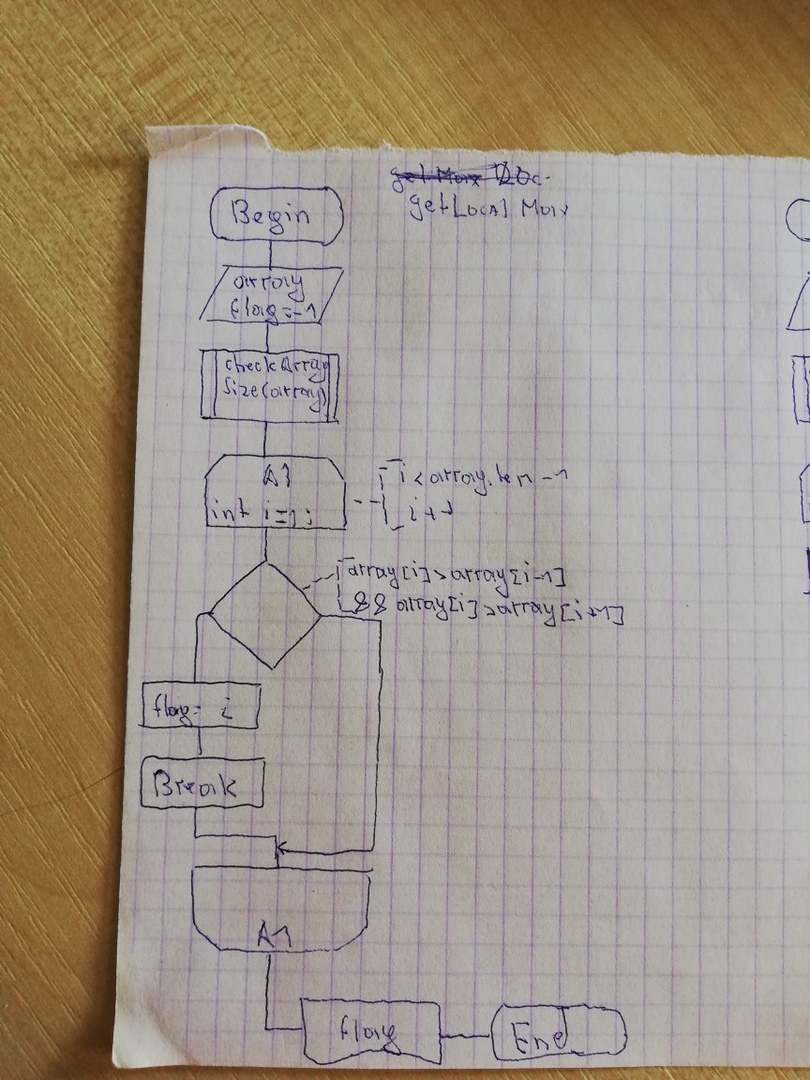 getLocal Max
Begin
array
flag=-1
checkArray
Size(array)
A1
int i=1;
i < array.len -1
i++
array[i]>array[i-1]
&& array[i]>array[i+1]
flag= i
Break
A1
flag
End